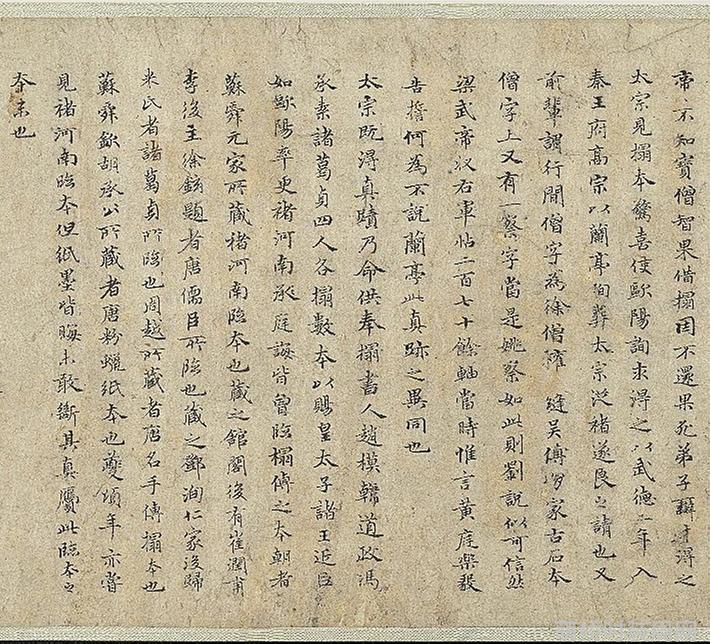 帝不知寳僧智果借搨因不還果死弟子辯才得之
太宗見搨本驚喜使歐陽詢求得之以武德二年入
秦王府髙宗以蘭亭殉葬太宗從褚遂良之請也又
前輩謂行間僧字為徐僧權 縫吴傅朋家古石本
僧字上又有一察字當是姚察如此則劉說似可信然
梁武帝收右軍帖二百七十餘軸當時惟言黃庭樂毅
告誓何為不說蘭亭此真跡之異同也
太宗既得真蹟乃命供奉搨書人趙模韓道政馮
承素諸葛貞四人各搨數本以賜皇太子諸王近臣
如歐陽率更褚河南承庭誨皆曾臨搨傳之本朝者
蘇舜元家所藏褚河南臨本也藏之館閣後有崔潤甫
李後主徐鉉題者唐儒臣所臨也藏之鄧洵仁家後歸
米氏者諸葛貞所臨也周越所藏者唐名手傳搨本也
蘇舜欽胡承公所藏者唐粉蠟紙本也夔頃年亦嘗
見褚河南臨本但紙墨皆晦未敢斷其真贋此臨本之
夲末也